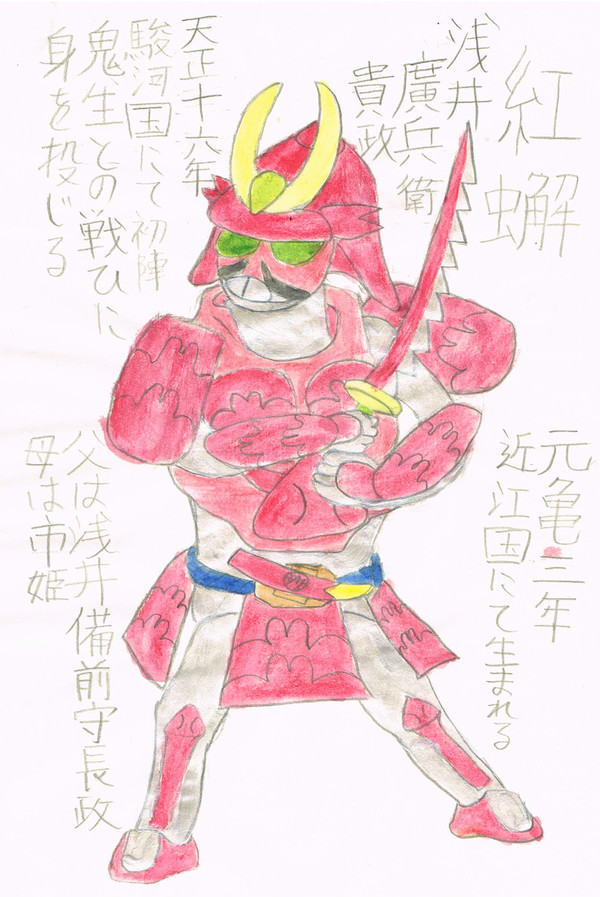 紅蠏
浅井
廣兵衛
貴政
天正十六年
駿河国にて初陣
鬼生との戦ひに
身を投じる
元亀三年
近江国にて生まれる
父は浅井備前守長政
母は市姫